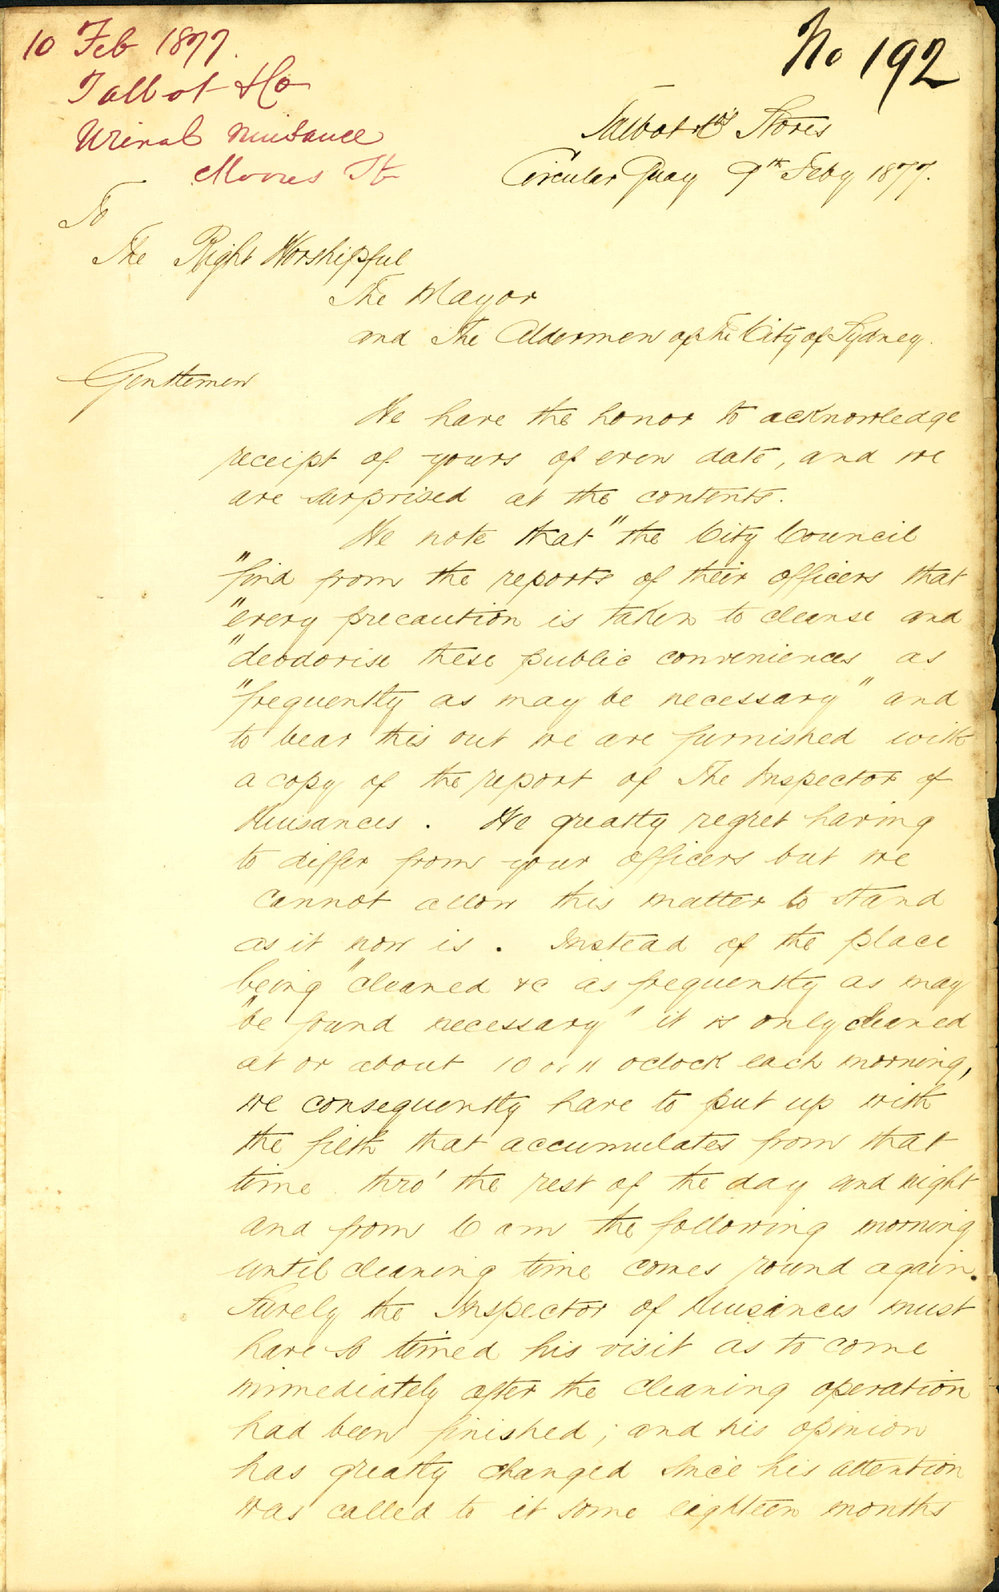 10 Feb 1877.
Talbot & Co
Urinal Nuisance
Moores St
No 192
Talbot & Co's Stores
Circular Quay 9th Feby 1877.
To
The Right Worshipful
The Mayor
and The Aldermen of The City of Sydney.
Gentlemen
We have the honor to acknowledge
receipt of yours of even date, and we
are surprised at the contents.
We note that "the City Council
"find from the reports of their officers that
"every precaution is taken to cleanse and
"deodorise these public conveniences as
"frequently as may be necessary" and
to bear this out we are furnished with
a copy of the report of The Inspector of
Nuisances. We greatly regret having
to differ from your officers but we
cannot allow this matter to stand
as it now is. Instead of the place
being "cleaned &c as frequently as may
"be found necessary" it is only cleaned
at or about 10 or 11 oclock each morning,
we consequently have to put up with
the filth that accumulates from that
time thro' the rest of the day and night
and from 6 am the following morning
until cleaning time comes round again.
Surely the Inspector of Nuisances must
have so timed his visit as to come
immediately after the cleaning operation
had been finished; and his opinion
has greatly changed since his attention
was called to it some eighteen months